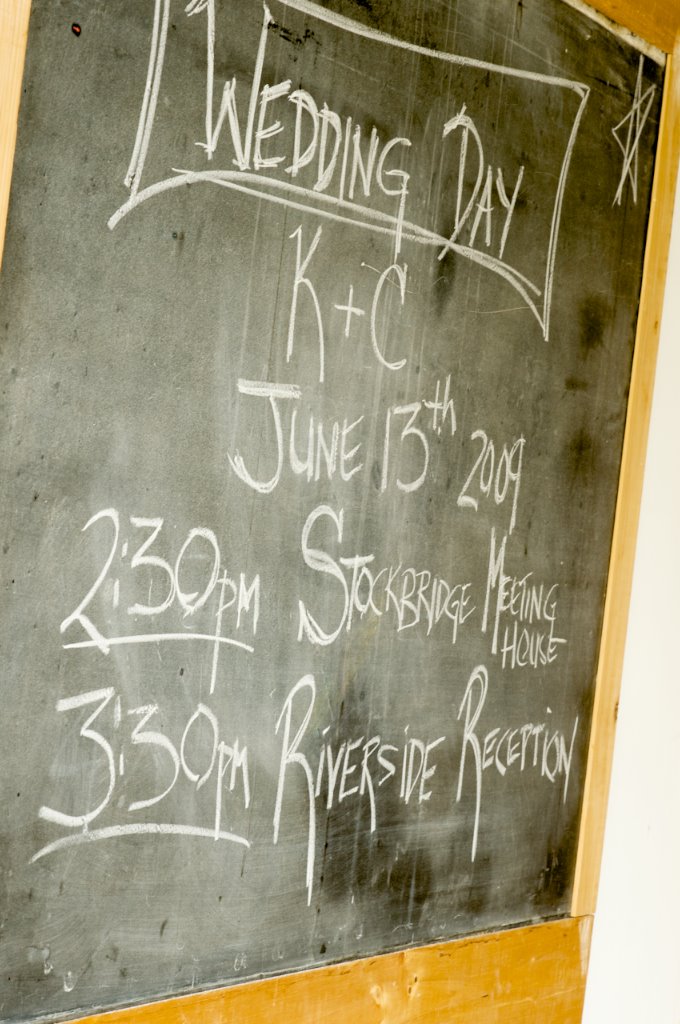 WEDDING DAY
K + C
JUNE 13th 2009
2:30pm STOCKBRIDGE MEETING
HOUSE
3:30pm RIVERSIDE RECEPTION